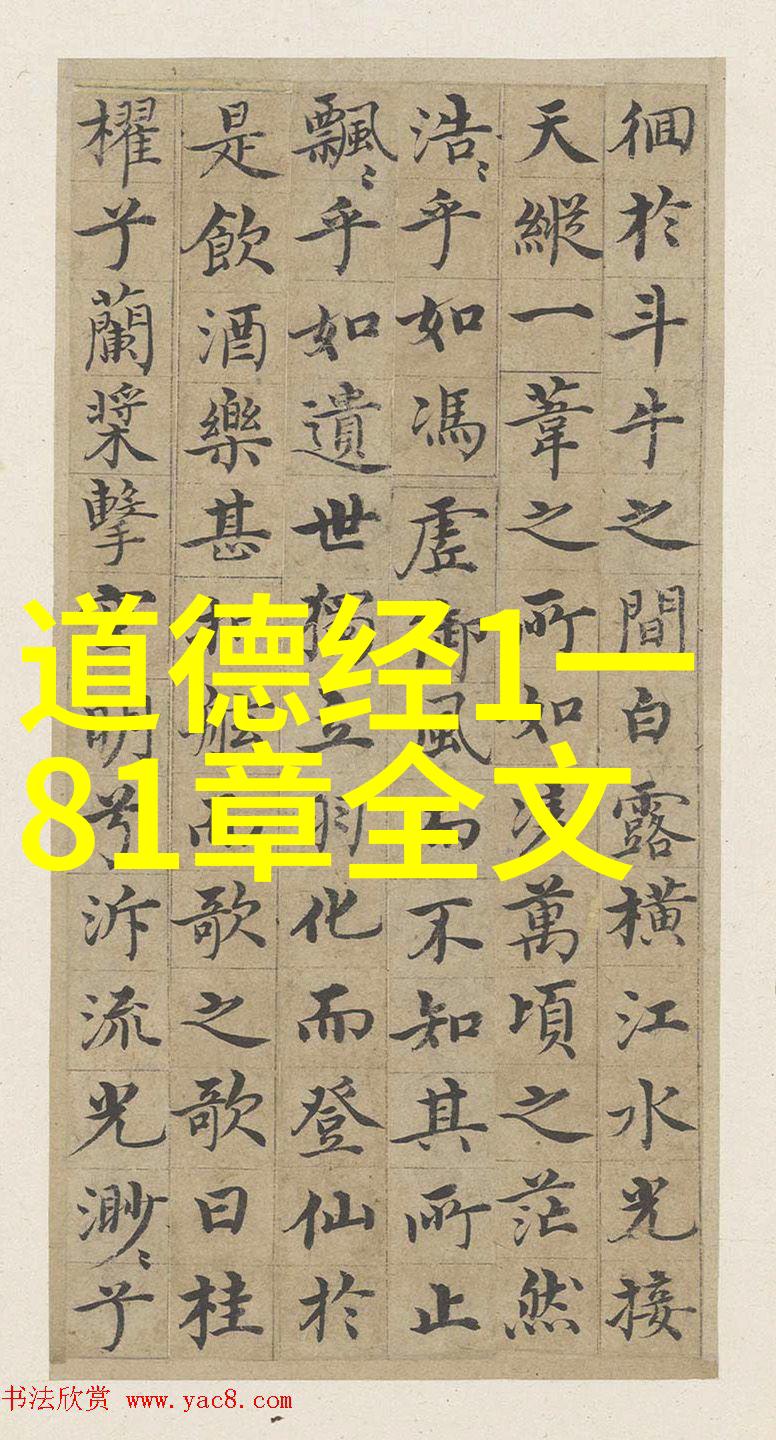 徊於斗牛之間白露橫江水光接
天縱一葦之所如凌萬頃之茫然
浩〻乎如馮虛御風而不知其所止
飄〻乎如遺世獨立羽化而登仙於
是飲酒樂甚扣舷而歌之歌曰桂
櫂兮蘭槳擊空明兮泝流光渺〻兮
道德经1一
81章全文
书法欣赏 www.yac8.com